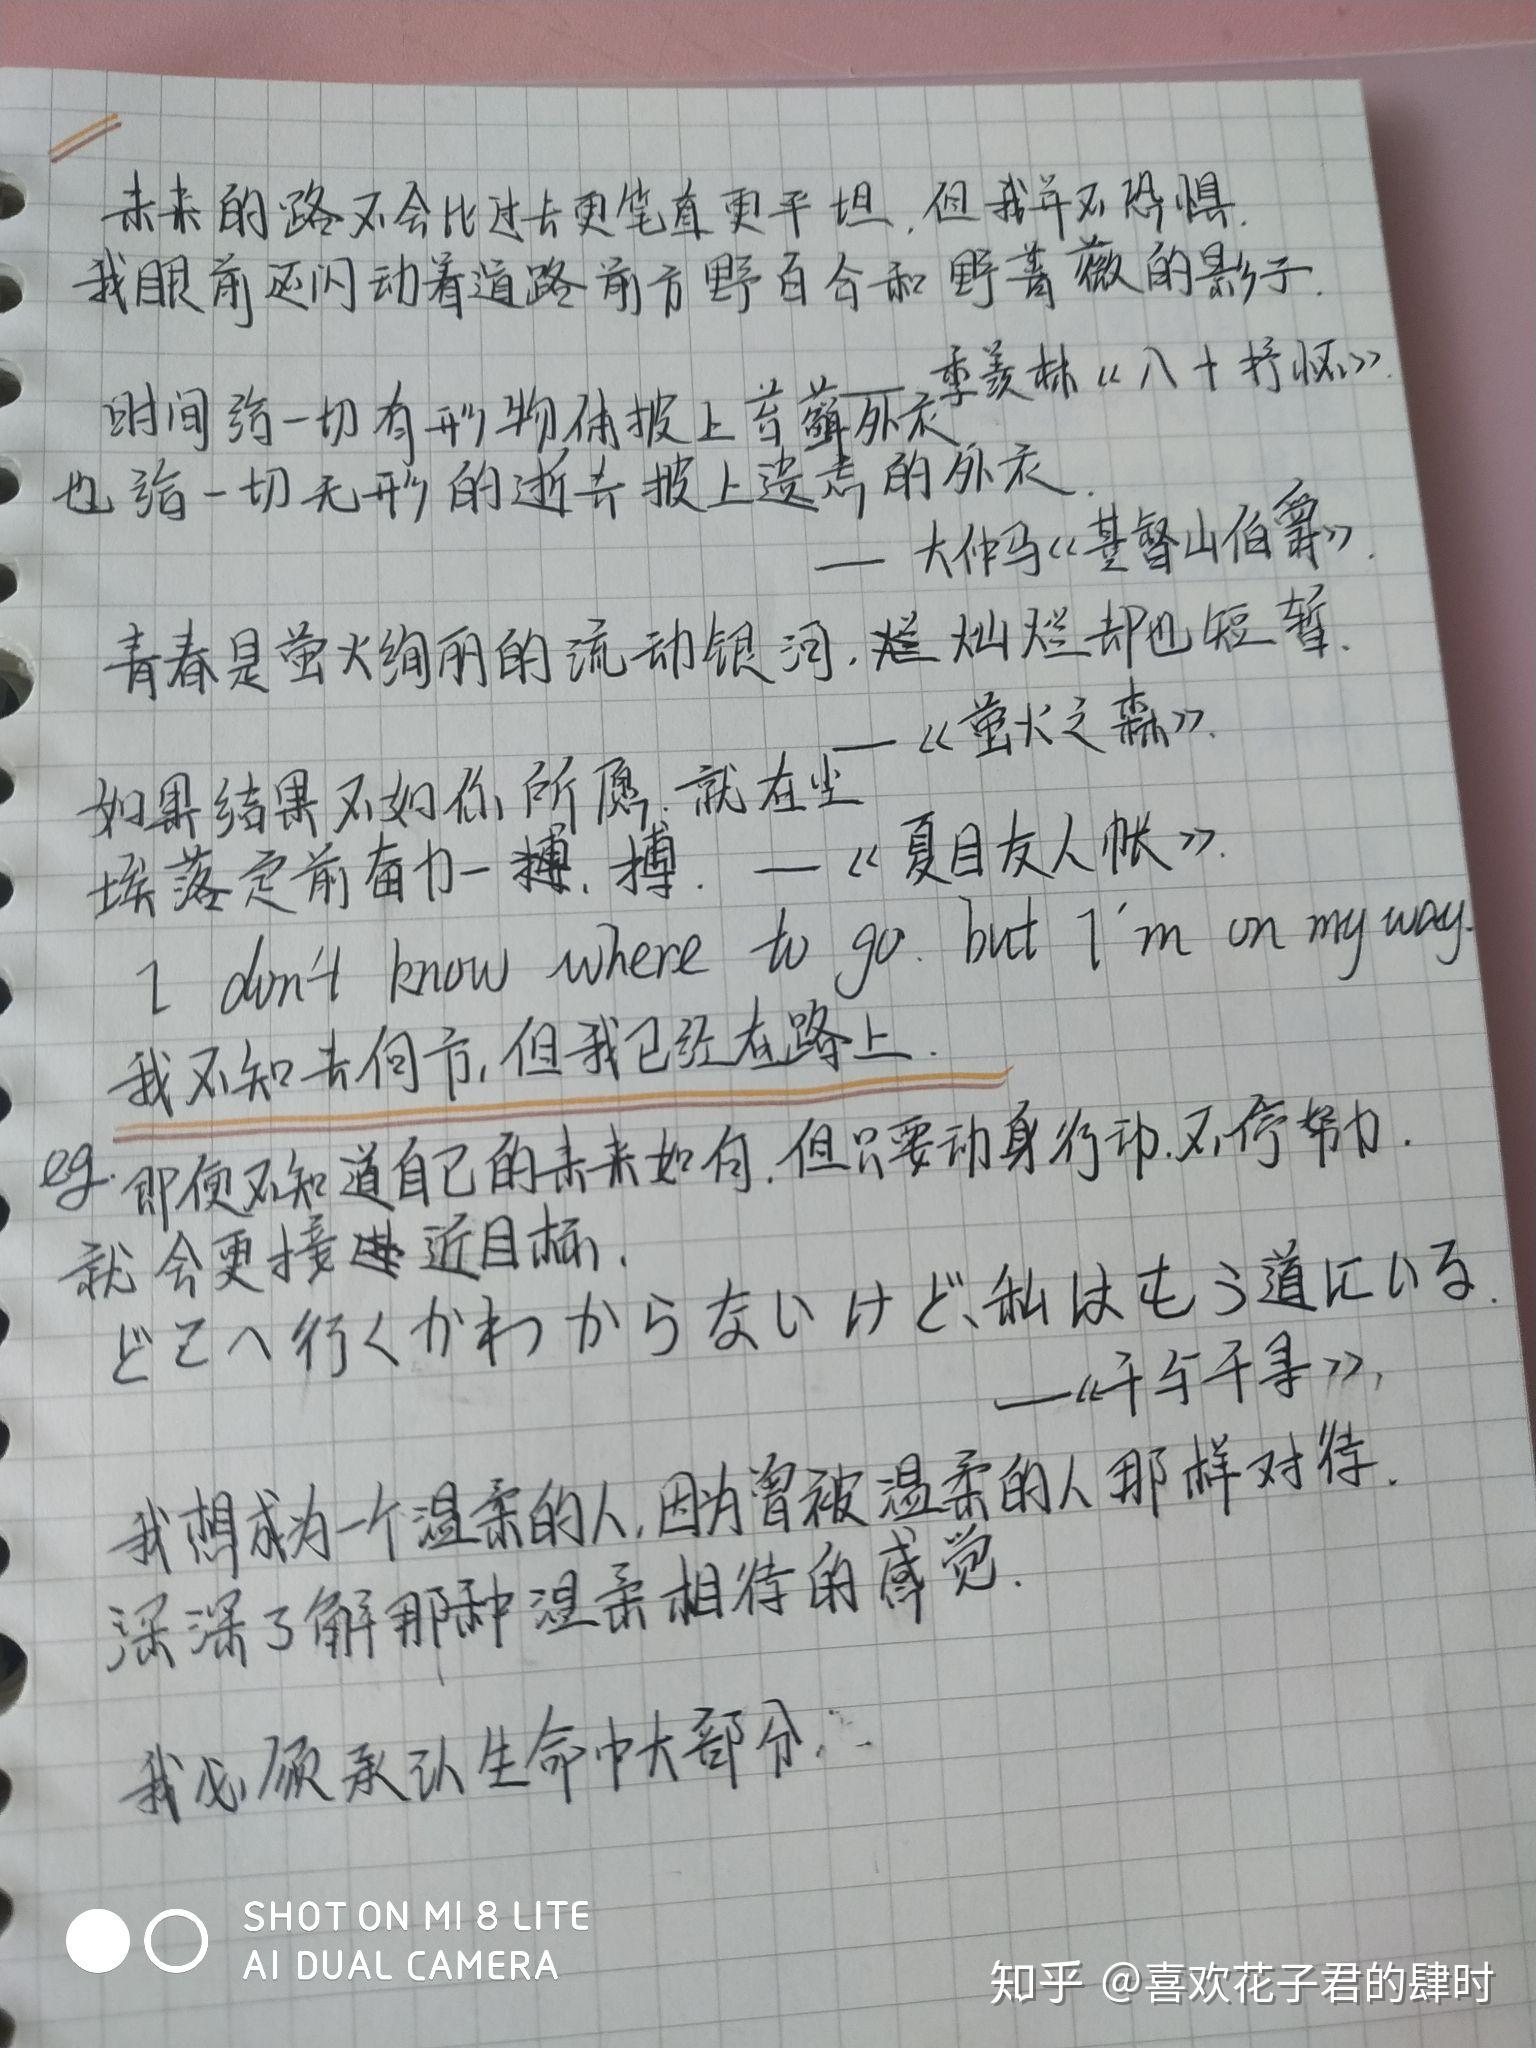 未来的路不会比过去更笔直更平坦，但我并不恐惧.
我眼前还闪动着道路前方野百合和野蔷薇的影子.
——季羡林《八十抒怀》.
时间给一切有形物体披上苔藓外衣
也给一切无形的逝去披上遗忘的外衣.
— 大仲马《基督山伯爵》.
青春是萤火绚丽的流动银河，灿烂却也短暂.
—《萤火之森》.
如果结果不如你所愿.就在尘
埃落定前奋力一搏. —《夏目友人帐》.
I don't know where to go. but I'm on my way.
我不知去何方,但我已经在路上.
eg.即便不知道自己的未来如何.但只要动身行动.不停努力.
就会更接近目标.
どこへ行くかわからないけど、私はもう道にいる.
—《千与千寻》,
我想成为一个温柔的人,因为曾被温柔的人那样对待.
深深了解那种温柔相待的感觉.
我必须承认生命中大部分.
SHOT ON MI 8 LITE
AI DUAL CAMERA
知乎 @喜欢花子君的肆时